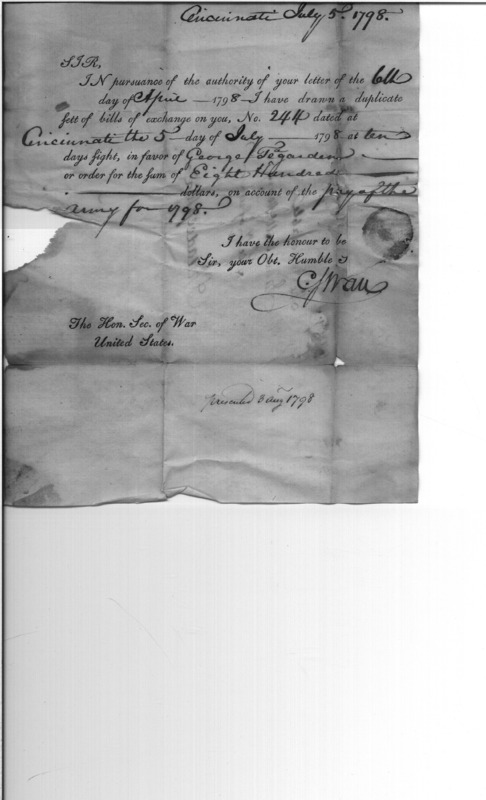 Cincinnati July 5th. 1798.
SIR,
IN pursuance of the authority of your letter of the 6th
day of April — 1798 — I have drawn a duplicate
sett of bills of exchange on you, No. 244 dated at
Cincinnati the 5th day of July — 1798 at ten
days sight, in favor of George Tegarden —
or order for the sum of Eight Hundred
dollars, on account of the pay of the
army for 1798.
I have the honour to be
Sir, your Obt. Humble S
C Swan
The Hon. Sec. of War
United States.
presented 3 Aug 1798